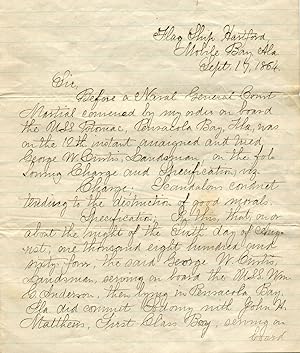 Flag Ship Hartford,
Mobile Bay, Ala
Sept. 17, 1864
Sir,
Before a Naval General Court
Martial convened by my order on board
the U.S.S. Potomac, Pensacola Bay, Fla, was
on the 12th instant arraigned and tried,
George W. Curtis, Landsman on the fol-
lowing Charge and Specification, viz.
Charge. Scandalous conduct
tending to the destruction of good morals.
Specification; In this, that, on or
about the night of the sixth day of Aug-
ust, one thousand eight hundred and
sixty four, the said George W. Curtis,
Landsman, serving on board the U.S.S. Wm
G. Anderson, then lying in Pensacola Bay,
Fla did commit Sodomy with John H.
Matthews, First Class Boy, serving on
board